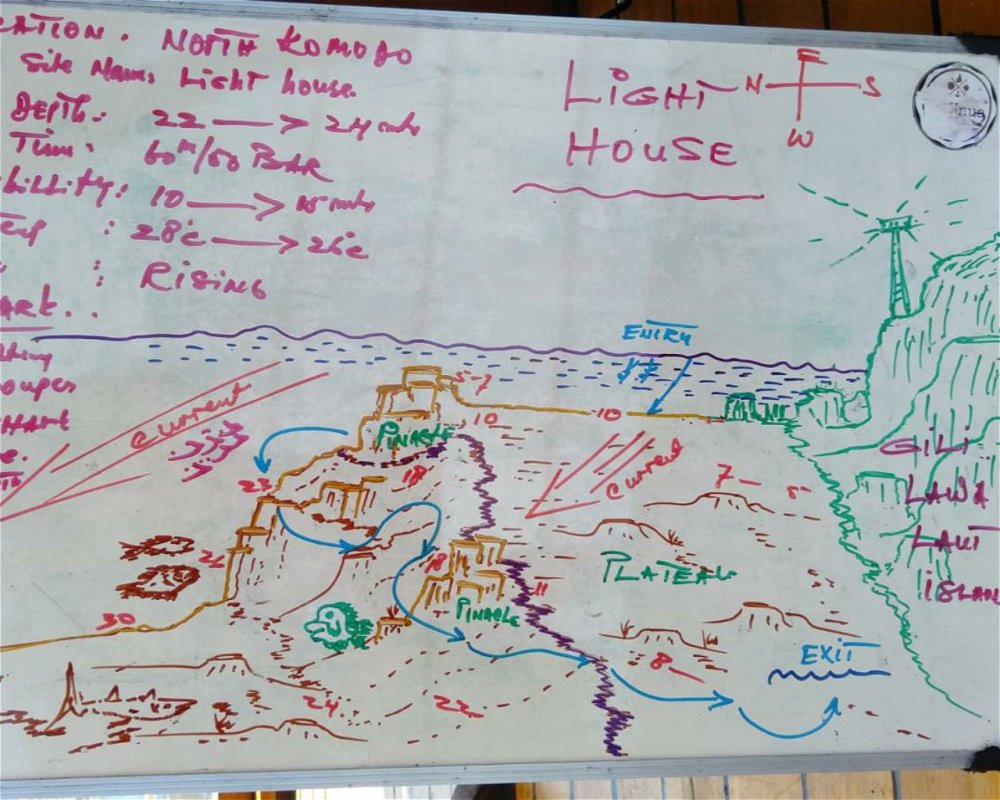 CATION. NOTTH KOMODO
Site Name: Light house.
DEPTH: 22 → 24 mts
Time. 60m/50 BAR
BILLITY: 10 → 15 mts
: 28°c → 26°c
: RISING
ARK..
LIGHT
HOUSE
N E S W
ENTRY
5-7
10
10
PINACLE
current
current
18
23
7 5
GILI
LAWA
LAUT
ISLAN
26
18
11
PLATEAU
PINACLE
30
8
EXIT
24
22